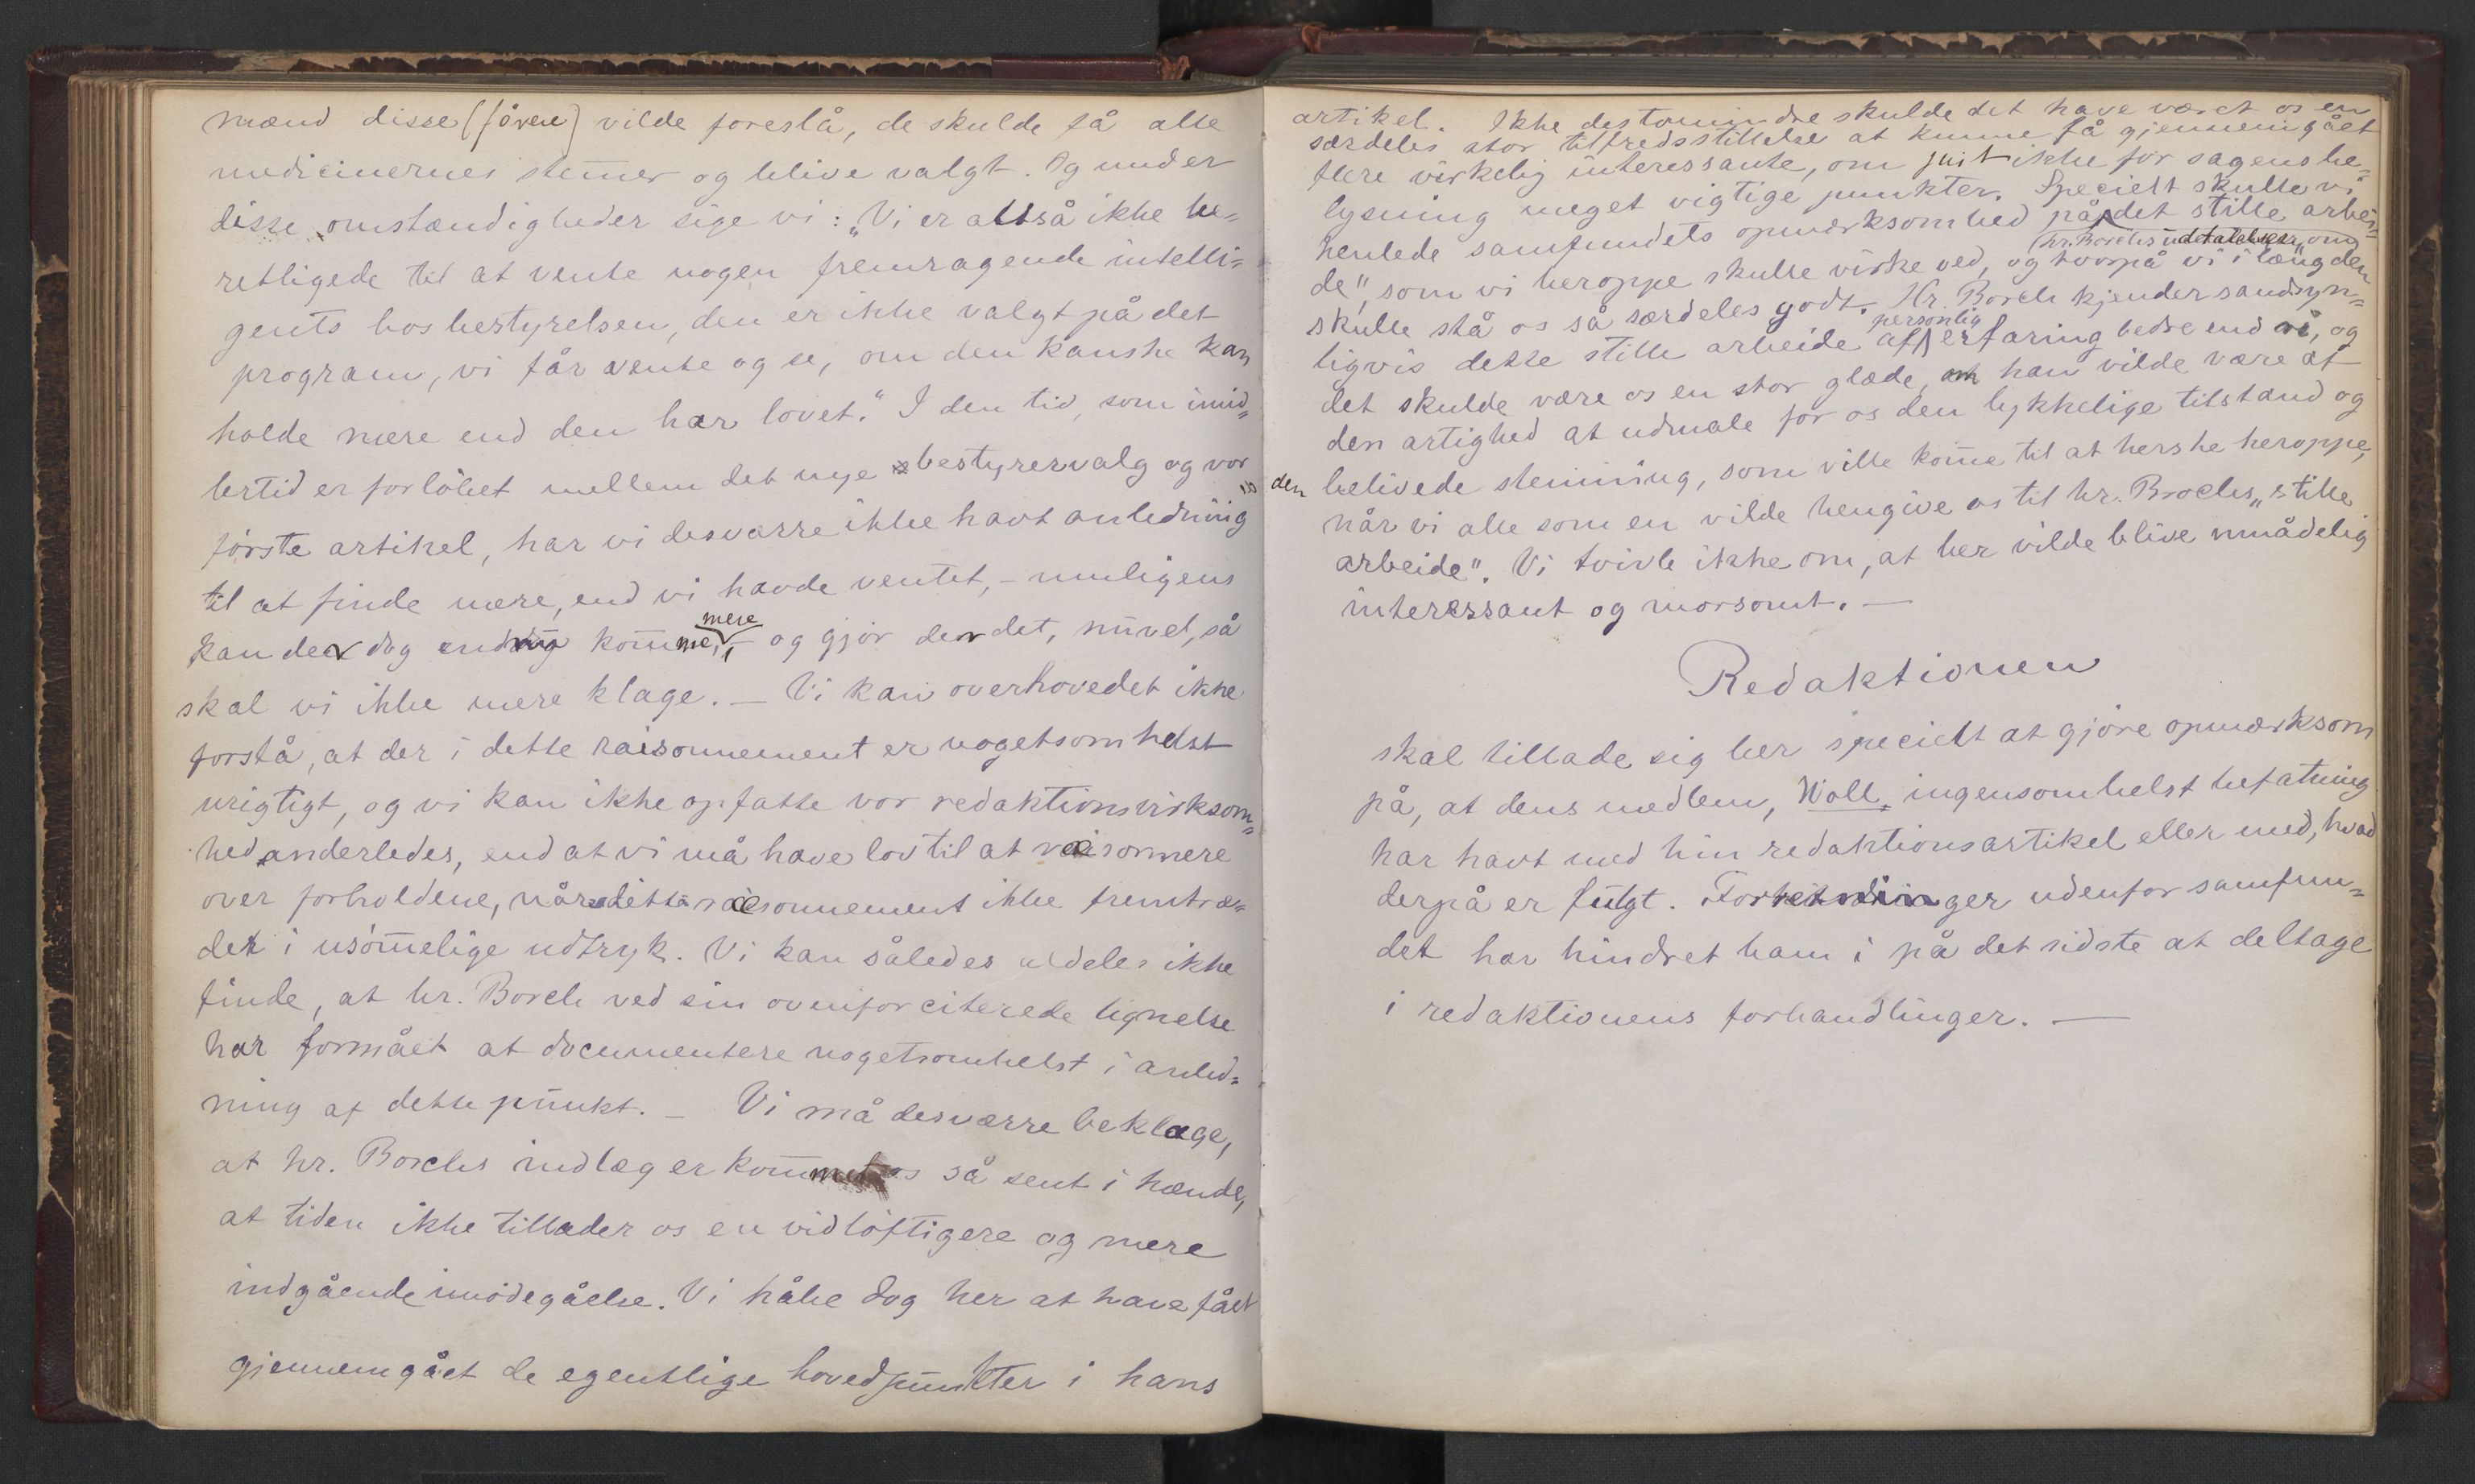 mænd disse (/åren) vilde foreslå, de skulde få alle
medicinernes stem̄er og blive valgt. Og under
disse omstændigheder sige vi: „Vi er altså ikke be=
rettigede til at vente nogen fremragende intelli=
gents hos bestyrelsen, den er ikke valgt på det
program, vi får vente og se, om den kanske kan
holde mere end den har lovet.“ I den tid, som imid=
lertid er forløbet mellem det nye bestyrervalg og vor
første artikel, har vi desværre ikke havt anledning
til at finde mere, end vi havde ventet, – muligens
mere
kan der dog endnu kom̄me, – og gjør den det, nuvel, så
skal vi ikke mere klage. – Vi kan overhovedet ikke
forstå, at der i dette raisonnement er nogetsomhelst
urigtigt, og vi kan ikke opfatte vor redaktionsvirksom=
hed anderledes, end at vi må have lov til at raisonnere
over forholdene, når dette raisonnement ikke fremtræ=
der i usøm̄elige udtryk. Vi kan således aldeles ikke
finde, at hr. Borch ved sin ovenfor citerede lignelse
har formået at documentere nogetsomhelst i anled=
ning af dette punkt. – Vi må desværre beklage,
at hr. Borchs indlæg er kom̄met os så sent i hænde,
at tiden ikke tillader os en vidløftigere og mere
indgående imødegåelse. Vi håbe dog her at have fået
gjennemgået de egentlige hovedpunkter i hans
artikel. Ikke destomindre skulde det have været os en
særdeles stor tilfredsstillelse at kunne få gjennemgået
flere virkelig interessante, om just ikke for sagens be=
lysning meget vigtige punkter. Specielt skulle vi
henlede samfundets opmærksomhed på det stille arbei=
hr. Borchs udtalelser om
de“, som vi heroppe skulle virke ved, og hvorpå vi i længden
skulle stå os så særdeles godt. Hr. Borch kjender sandsyn=
personlig
ligvis dette stille arbeide af erfaring bedre end vi, og
det skulde være os en stor glæde, om han vilde være af
den artighed at udmale for os den lykkelige tilstand og
den belivede stemning, som ville kom̄e til at herske heroppe,
når vi alle som en vilde hengive os til hr. Brochs „stille
arbeide“. Vi tvivle ikke om, at her vilde blive umådelig
interessant og morsomt. –
Redaktionen
skal tillade sig her specielt at gjøre opmærksom
på, at dens medlem, Woll, ingensomhelst befatning
har havt med hin redaktionsartikel eller med, hvad
derpå er fulgt. Forretninger udenfor samfun=
det har hindret ham i på det sidste at deltage
i redaktionens forhandlinger. –